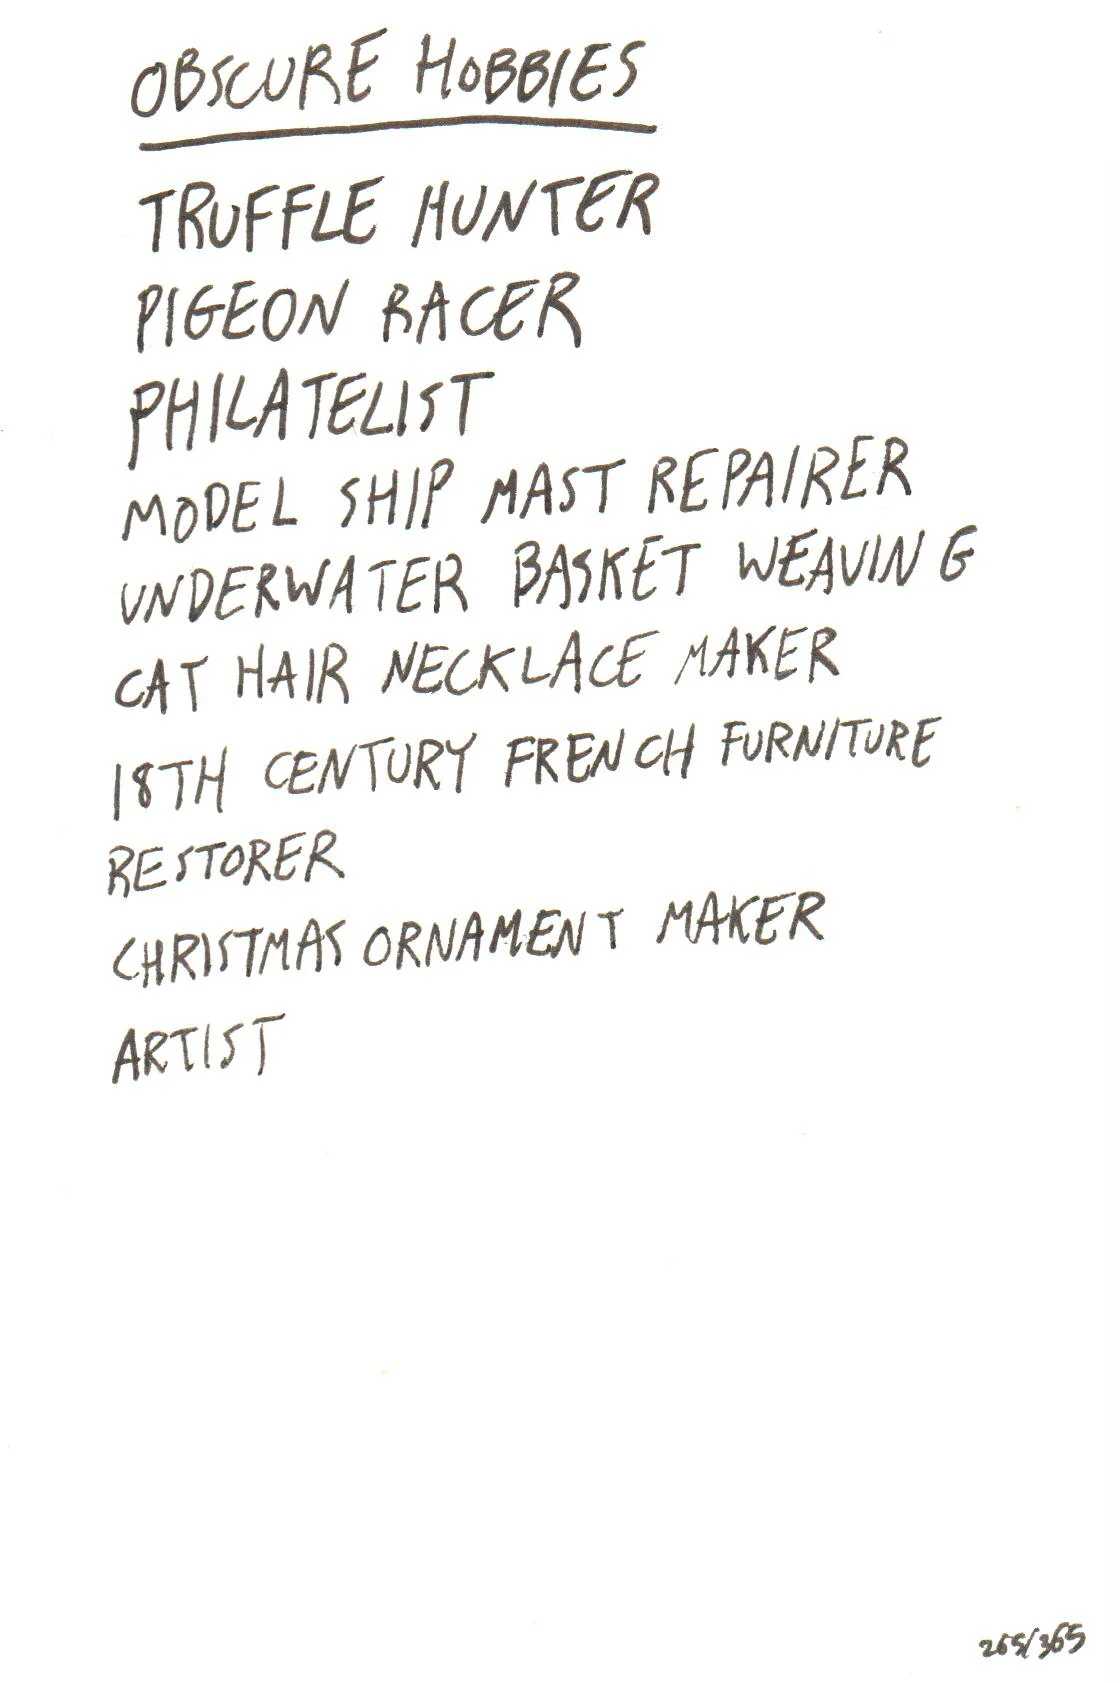 OBSCURE HOBBIES
TRUFFLE HUNTER
PIGEON RACER
PHILATELIST
MODEL SHIP MAST REPAIRER
UNDERWATER BASKET WEAVING
CAT HAIR NECKLACE MAKER
18TH CENTURY FRENCH FURNITURE
RESTORER
CHRISTMAS ORNAMENT MAKER
ARTIST
265/365